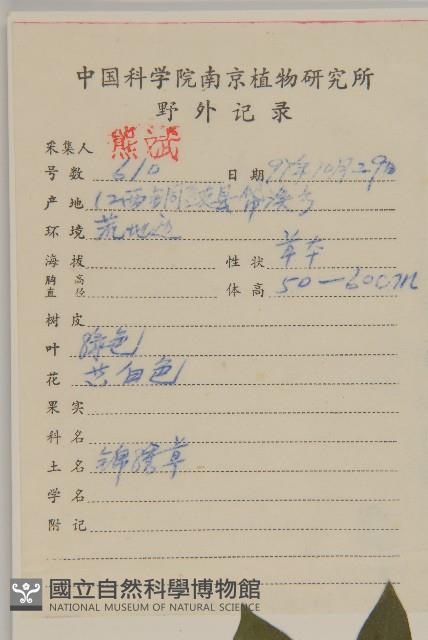 中国科学院南京植物研究所
野外记录
采集人 熊斌
号数 610 日期 97年10月29日
产地 江西铜
环境 荒地边
海拔 性状 草本
胸高直径 体高 50—60cm
树皮
叶 绿色
花 白色
果实
科名
土名 草
学名
附记
國立自然科學博物館
NATIONAL MUSEUM OF NATURAL SCIENCE